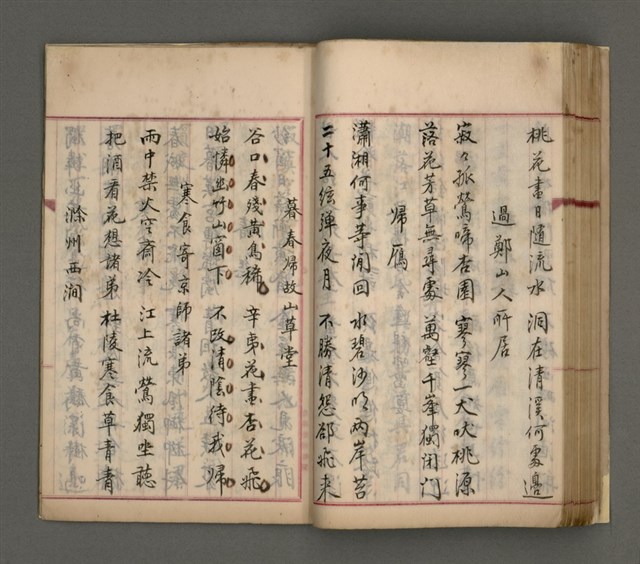 桃花畫日隨流水 洞在清溪何處邊
過鄭山人所居
寂々孤鶯啼杏園 寥寥一犬吠桃源
落花芳草無尋處 萬壑千峯獨閉门
歸鴈
瀟湘何事等閒回 水碧沙明两岸苔
二十五弦弹夜月 不勝清怨郤飛来
暮春歸故山草堂
谷口春殘黄鳥稀 辛夷花盡杏花飛
始憐幽竹山窗下 不改清陰待我歸
寒食寄京師諸弟
雨中禁火空齋冷 江上流鶯獨坐聽
把酒看花想諸弟 杜陵寒食草青青
滁州西澗